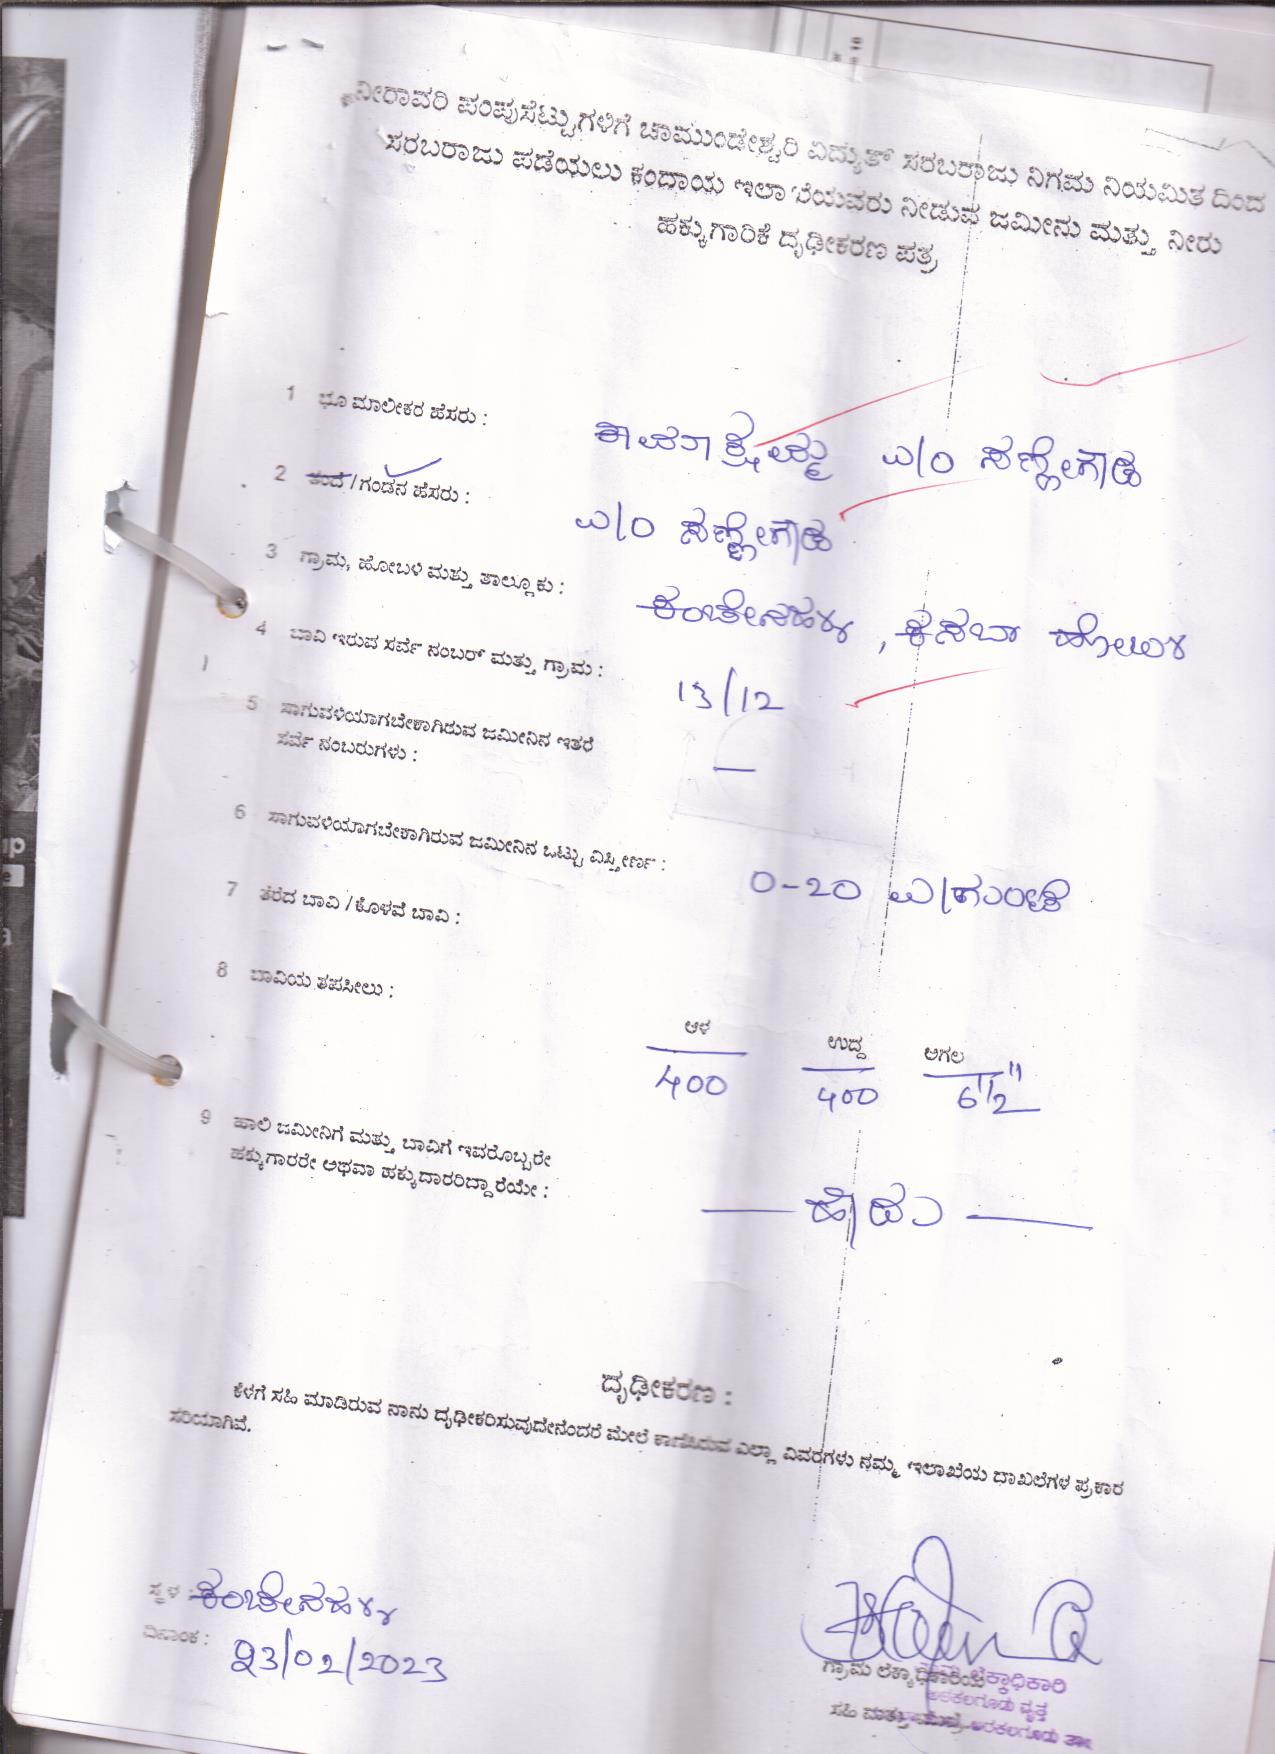 ನೀರಾವರಿ ಪಂಪುಸೆಟ್ಟುಗಳಿಗೆ ಚಾಮುಂಡೇಶ್ವರಿ ವಿದ್ಯುತ್ ಸರಬರಾಜು ನಿಗಮ ನಿಯಮಿತ ದಿಂದ
ಸರಬರಾಜು ಪಡೆಯಲು ಕಂದಾಯ ಇಲಾಖೆಯವರು ನೀಡುವ ಜಮೀನು ಮತ್ತು ನೀರು
ಹಕ್ಕುಗಾರಿಕೆ ದೃಢೀಕರಣ ಪತ್ರ
1 ಭೂ ಮಾಲೀಕರ ಹೆಸರು : ಕಾಮಾಕ್ಷಮ್ಮ W/O ಸಣ್ಣೇಗೌಡ
2 ತಂದೆ / ಗಂಡನ ಹೆಸರು : W/O ಸಣ್ಣೇಗೌಡ
3 ಗ್ರಾಮ, ಹೋಬಳಿ ಮತ್ತು ತಾಲ್ಲೂಕು : ಕಂಚೇನಹಳ್ಳಿ , ಕಸಬಾ ಹೋಬಳಿ
4 ಬಾವಿ ಇರುವ ಸರ್ವೆ ನಂಬರ್ ಮತ್ತು ಗ್ರಾಮ : 13/12
5 ಸಾಗುವಳಿಯಾಗಬೇಕಾಗಿರುವ ಜಮೀನಿನ ಇತರೆ
ಸರ್ವೆ ನಂಬರುಗಳು : —
6 ಸಾಗುವಳಿಯಾಗಬೇಕಾಗಿರುವ ಜಮೀನಿನ ಒಟ್ಟು ವಿಸ್ತೀರ್ಣ : 0-20 ಎ/ಗುಂಟೆ
7 ತೆರೆದ ಬಾವಿ / ಕೊಳವೆ ಬಾವಿ :
8 ಬಾವಿಯ ತಪಸೀಲು :
ಆಳ ಉದ್ದ ಅಗಲ
400 400 6 1/2"
9 ಹಾಲಿ ಜಮೀನಿಗೆ ಮತ್ತು ಬಾವಿಗೆ ಇವರೊಬ್ಬರೇ
ಹಕ್ಕುಗಾರರೇ ಅಥವಾ ಹಕ್ಕುದಾರರಿದ್ದಾರೆಯೇ : — ಹೌದು —
ದೃಢೀಕರಣ :
ಕೆಳಗೆ ಸಹಿ ಮಾಡಿರುವ ನಾನು ದೃಢೀಕರಿಸುವುದೇನೆಂದರೆ ಮೇಲೆ ಕಾಣಿಸಿರುವ ಎಲ್ಲಾ ವಿವರಗಳು ನಮ್ಮ ಇಲಾಖೆಯ ದಾಖಲೆಗಳ ಪ್ರಕಾರ
ಸರಿಯಾಗಿವೆ.
ಸ್ಥಳ : ಕಂಚೇನಹಳ್ಳಿ
ದಿನಾಂಕ : 23/02/2023
ಗ್ರಾಮ ಲೆಕ್ಕಾಧಿಕಾರಿಯ
ಲೆಕ್ಕಾಧಿಕಾರಿ
ಅರಕಲಗೂಡು ವೃತ್ತ
ಸಹಿ ಮತ್ತು ಮೊಹರು
ಅರಕಲಗೂಡು ತಾ||